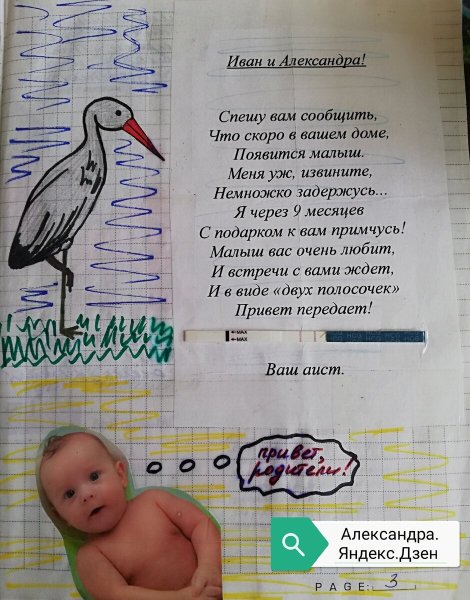 Иван и Александра!
Спешу вам сообщить,
Что скоро в вашем доме,
Появится малыш.
Меня уж, извините,
Немножко задержусь...
Я через 9 месяцев
С подарком к вам примчусь!
Малыш вас очень любит,
И встречи с вами ждет,
И в виде «двух полосочек»
Привет передает!
MAX
MAX
Ваш аист.
привет,
родители!
Александра.
Яндекс.Дзен
PAGE: 3